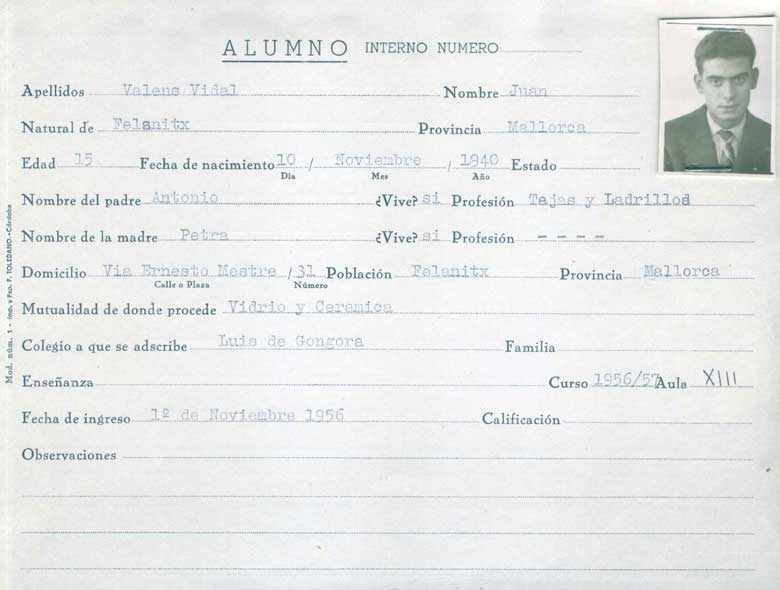 ALUMNO INTERNO NUMERO
Apellidos Valens Vidal Nombre Juan
Natural de Felanitx Provincia Mallorca
Edad 15 Fecha de nacimiento 10 / Noviembre / 1940 Estado
Día Mes Año
Nombre del padre Antonio ¿Vive? si Profesión Tejas y Ladrillod
Nombre de la madre Petra ¿Vive? si Profesión - - - -
Domicilio Via Ernesto Mestre / 31 Población Felanitx Provincia Mallorca
Calle o Plaza Número
Mutualidad de donde procede Vidrio y Ceramica
Colegio a que se adscribe Luis de Gongora Familia
Enseñanza Curso 1956/57 Aula XIII
Fecha de ingreso 1º de Noviembre 1956 Calificación
Observaciones
Mod. núm. 1 - Imp. y Pap. F. TOLEDANO.-Córdoba